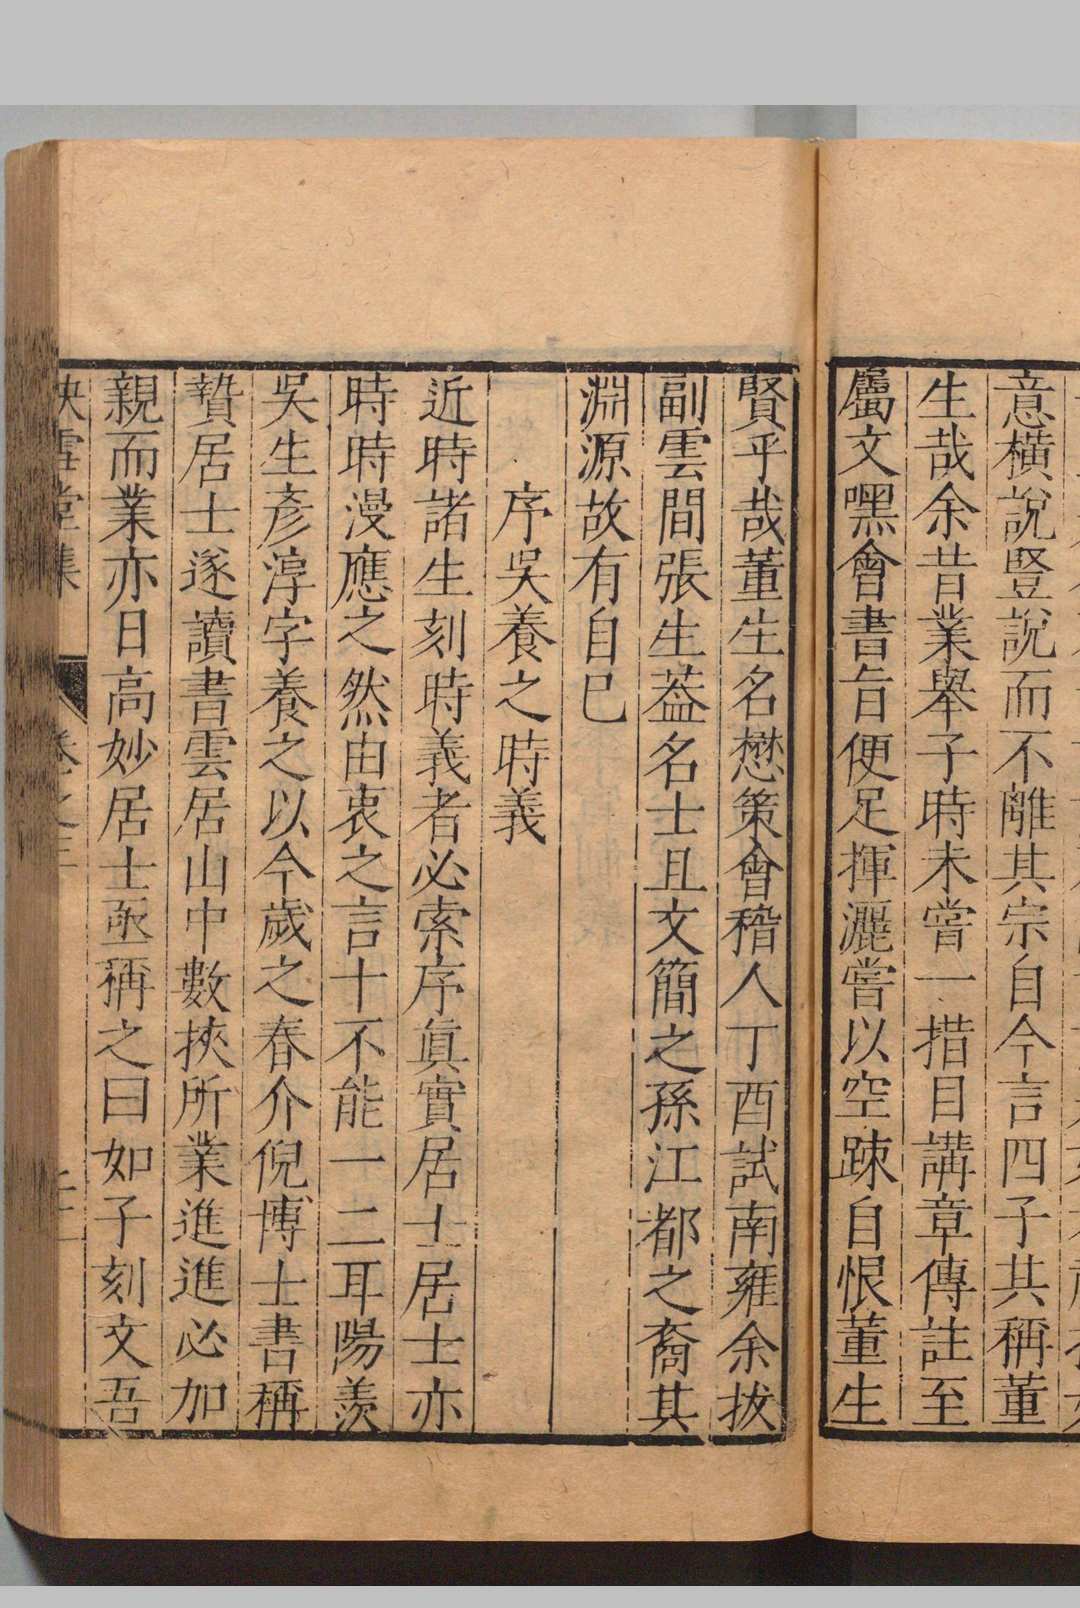 意橫說豎說而不離其宗自今言四子共稱董
生哉余昔業舉子時未嘗一措目講章傳註至
屬文嘿會書旨便足揮灑嘗以空踈自恨董生
賢乎哉董生名懋策會稽人丁酉試南雍余拔
副雲間張生葢名士且文簡之孫江都之裔其
淵源故有自已
序吳養之時義
近時諸生刻時義者必索序眞實居士居士亦
時時漫應之然由衷之言十不能一二耳陽羨
吳生彥淳字養之以今歲之春介倪博士書稱
贄居士遂讀書雲居山中數挾所業進進必加
親而業亦日高妙居士亟稱之曰如子刻文吾
快雪堂集 卷之三